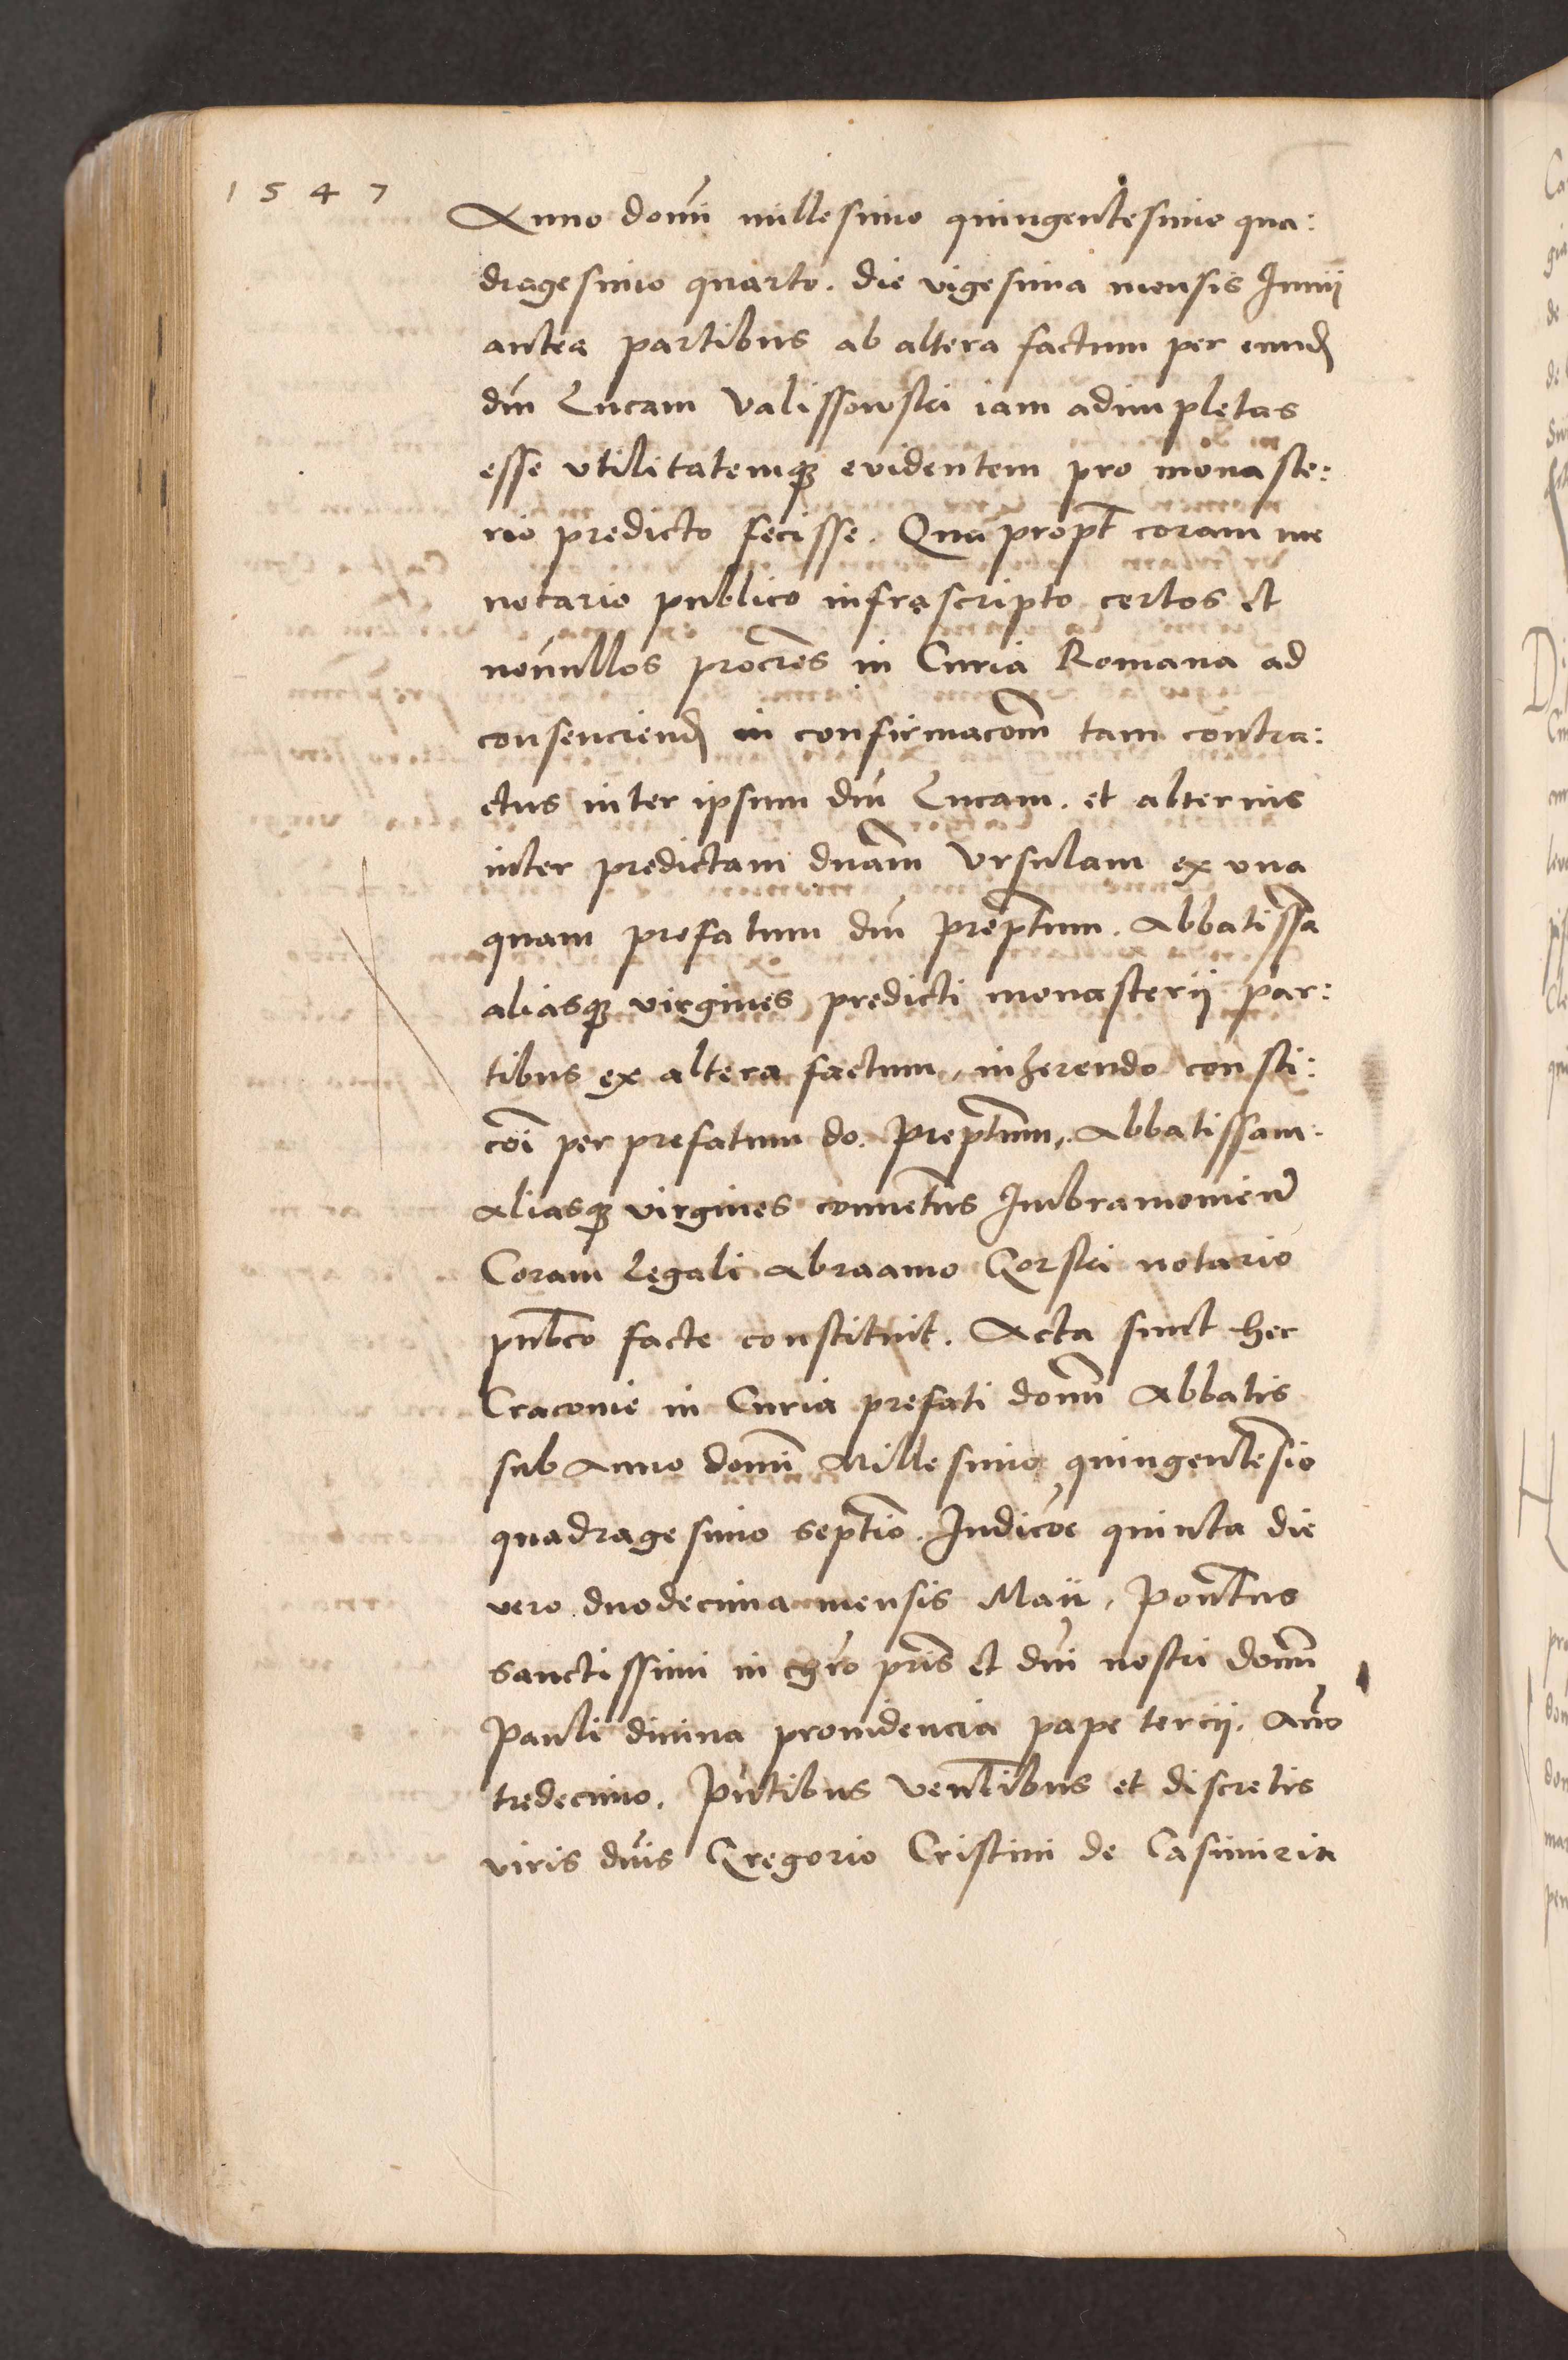 1547
Anno domi millesimo quingentesimo qua:
dragesimo quarto. die vigesima mensis Junij
antea partibus ab altera factum per eund
dm Lucam Valissowski iam adimpletas
esse vtilitatemq evidentem pro monaste:
rio predicto fecisse. Qua propt coram me
notario publico infrascripto certos et
nonullos procres in Curia Romana ad
consenciend in confirmacom tam contra:
ctus inter ipsum dm Lucam. et alterius
inter predictam dnam Vrsulam ex vna
quam prefatum dm preptum. Abbatissa
aliasq virgines predicti monasterij par:
tibus ex altera factum, inherendo consti:
coi per prefatum do. preptum,. Abbatissam.
aliasq virgines conuetus Imbramomien
Coram legali Abraamo Gorski notario
pubco facte constituit. Acta sunt hec
Cracouie in Curia prefati domi Abbatis
sub Anno domi Millesimo quingentesio
quadragesimo septio. Indicoe quinta die
vero duodecima mensis Maii, Pontus
sanctissimi in chro pris et dni nostri domi
Pauli diuina prouidencia pape tercij. Ano
tredecimo. Pntibus Ventibus et discretis
viris dnis Gregorio Cristini de Casimiria